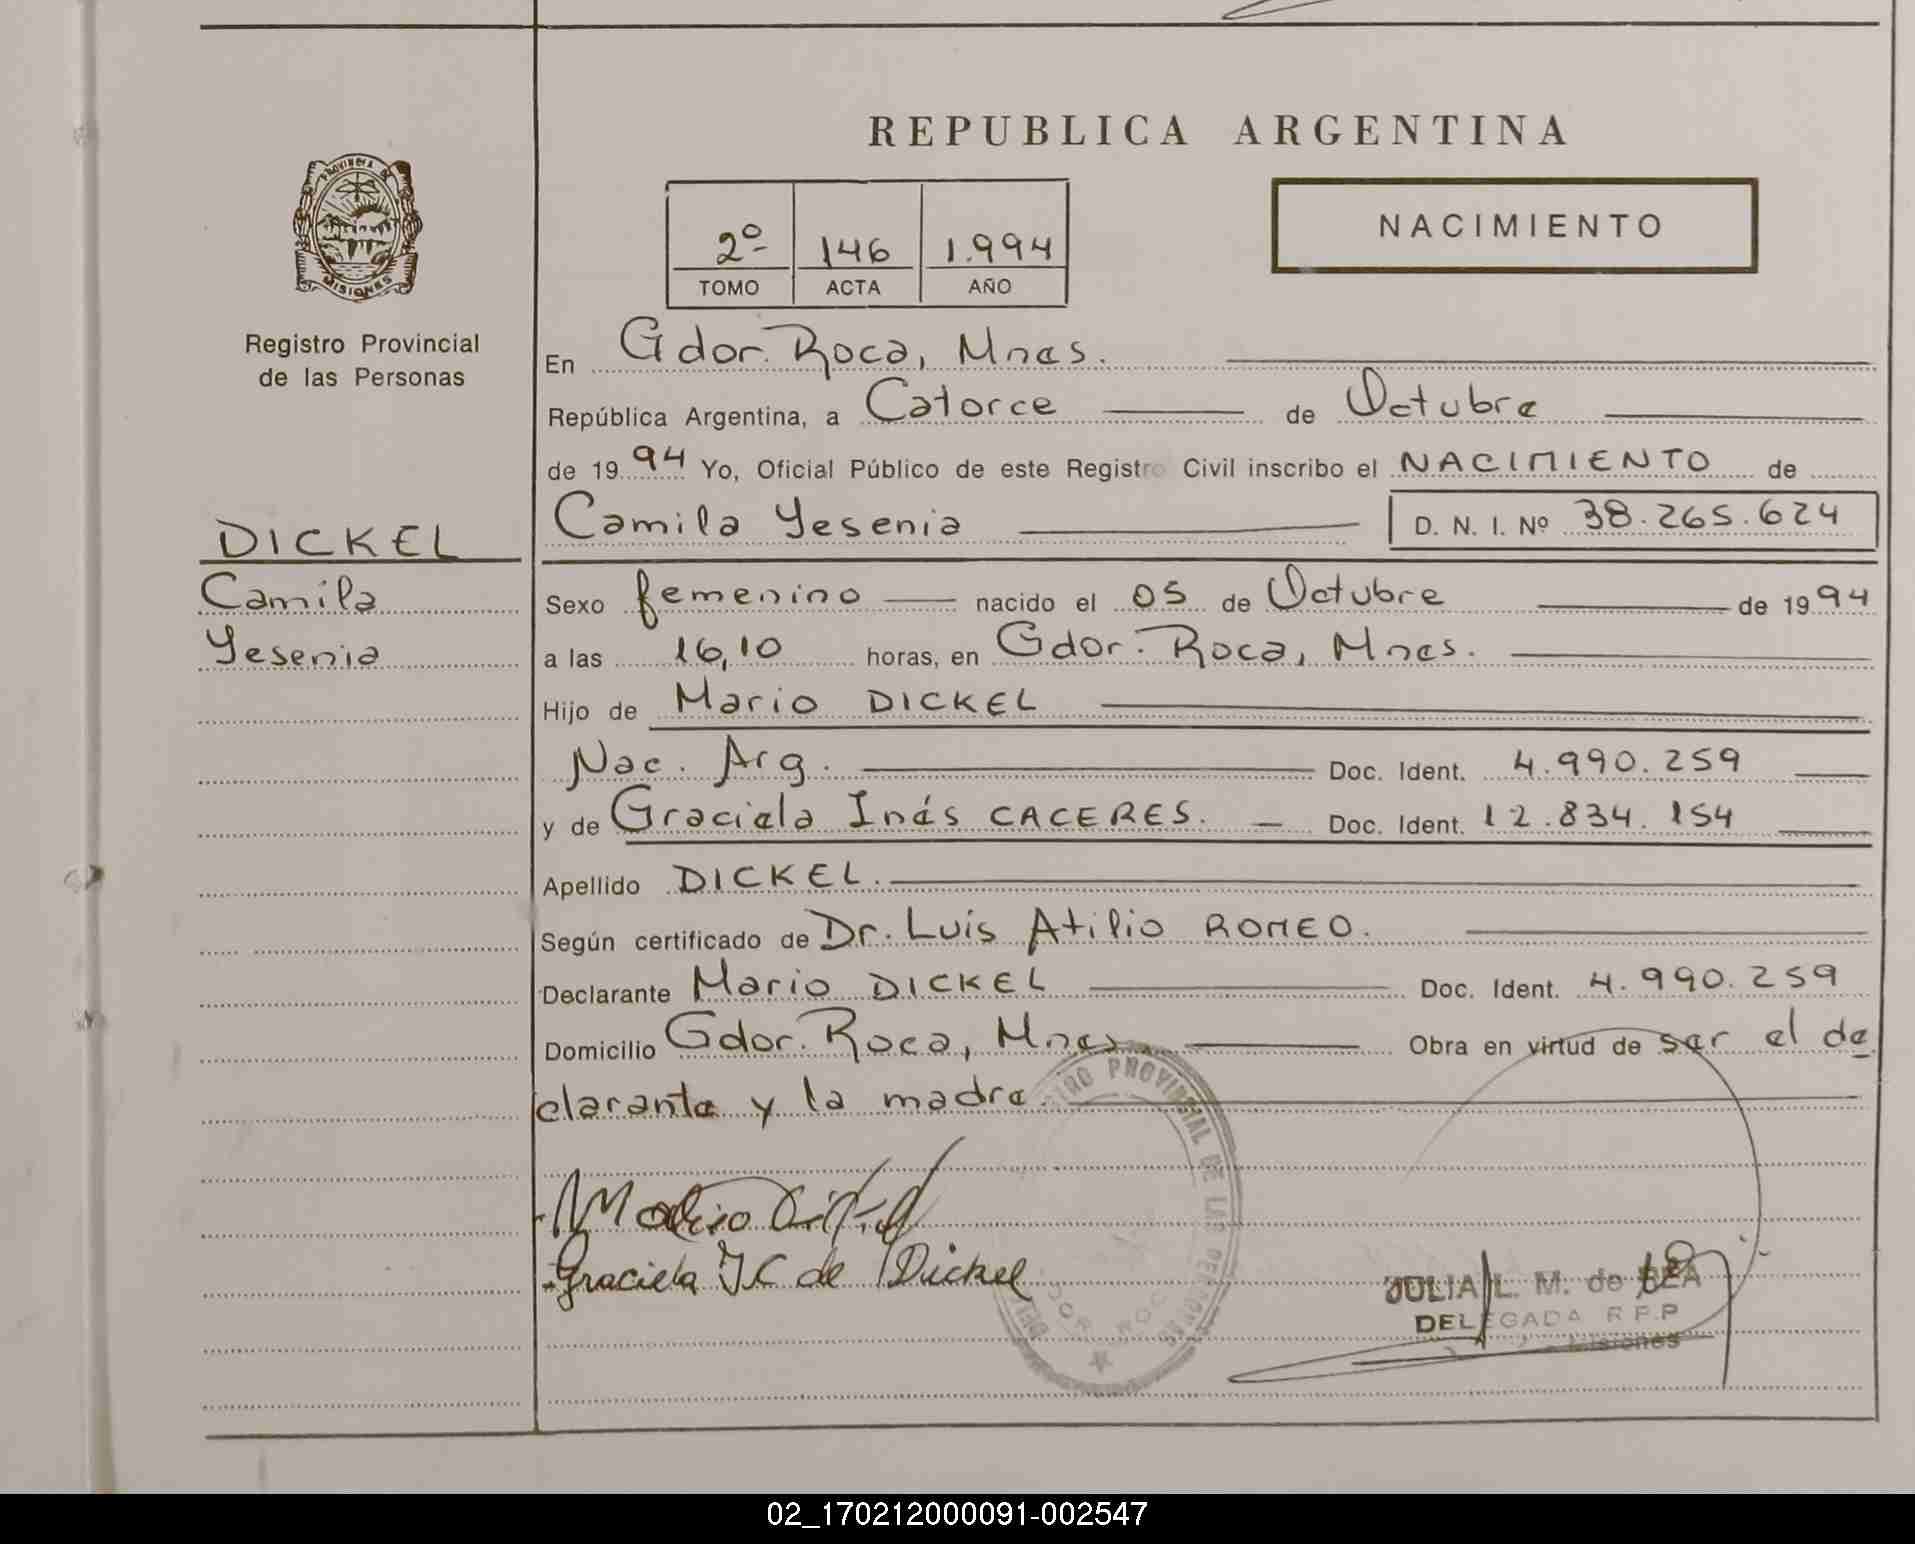 REPUBLICA ARGENTINA
PROVINCIA DE
MISIONES
Registro Provincial
de las Personas
2º 146 1.994
TOMO ACTA AÑO
NACIMIENTO
En Gdor. Roca, Mnes.
República Argentina, a Catorce de Octubre
de 1994 Yo, Oficial Público de este Registro Civil inscribo el NACIMIENTO de
Camila Yesenia D. N. I. Nº 38.265.624
DICKEL
Camila
Yesenia
Sexo femenino nacido el 05 de Octubre de 1994
a las 16,10 horas, en Gdor. Roca, Mnes.
Hijo de Mario DICKEL
Nac. Arg. Doc. Ident. 4.990.259
y de Graciela Inés CACERES. Doc. Ident. 12.834.154
Apellido DICKEL.
Según certificado de Dr. Luis Atilio ROMEO.
Declarante Mario DICKEL Doc. Ident. 4.990.259
Domicilio Gdor. Roca, Mnes. Obra en virtud de ser el de
clarante y la madre.
PROVINCIAL DE LAS PERSONAS
Graciela I C de Dickel
JULIA L. M. de
DELEGADA R.P.P
Misiones
02_170212000091-002547